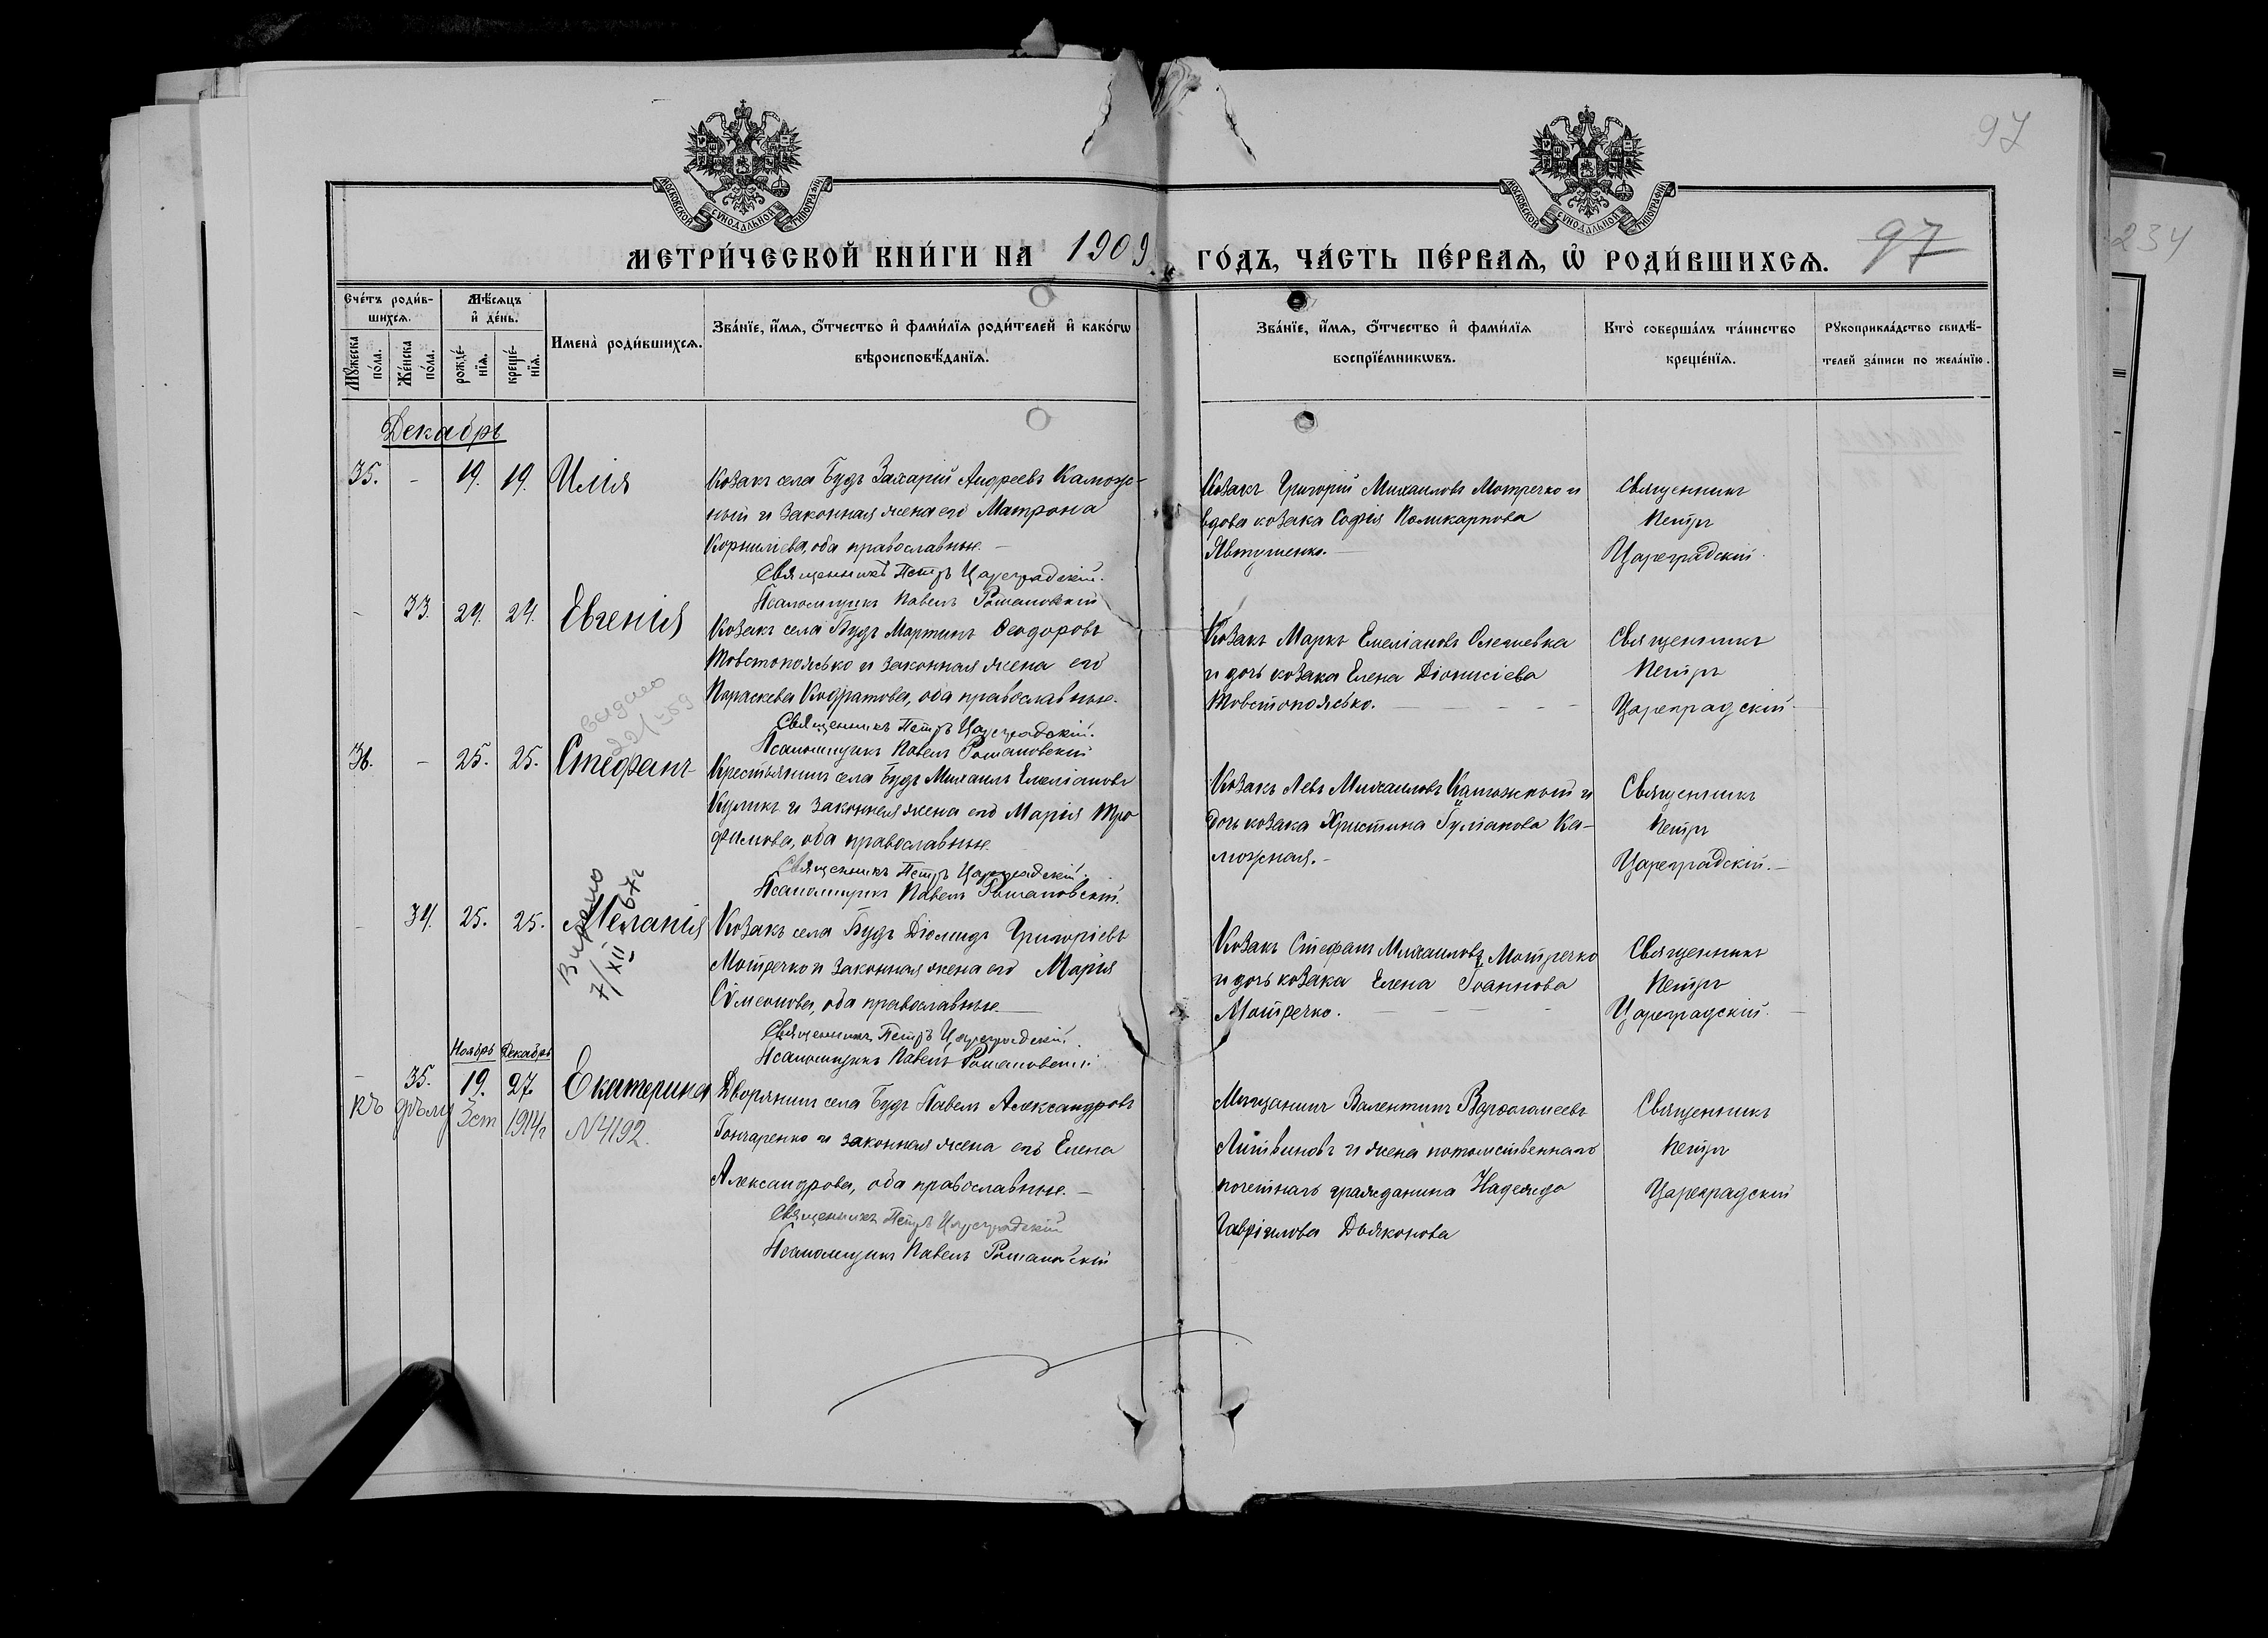 97
МОСКОВСКОЙ СѴНОДАЛЬНОЙ ТИПОГРАФІИ
МОСКОВСКОЙ СѴНОДАЛЬНОЙ ТИПОГРАФІИ
МЕТРИ́ЧЕСКОЙ КНИ́ГИ НА 1909 ГО́ДЪ, ЧА́СТЬ ПЕ́РВАѦ, Ѡ҆ РОДИ́ВШИХСѦ. 97
234
Сче́тъ роди́в-
шихсѧ.
Мѣ́сѧцъ
и҆ де́нь.
Мꙋ́жеска
по́ла.
Же́нска
по́ла.
рожде́-
нїѧ.
креще́-
нїѧ.
Имена̀ роди́вшихсѧ.
Зва́нїе, и҆́мѧ, ѻ҆́тчество и҆ фами́лїѧ роди́телей и҆ како́гѡ
вѣроисповѣ́данїѧ.
Зва́нїе, и҆́мѧ, ѻ҆́тчество и҆ фами́лїѧ
воспрїе́мникѡвъ.
Кто̀ соверша́лъ та́инство
креще́нїѧ.
Рꙋкоприкла́дство свидѣ́-
телей за́писи по жела́нїю.
Декабрь
35. - 19. 19. Илія
Козакъ села Будъ Захарій Андреевъ Каможс-
ный и законная жена его Матрона
Корниліева, оба православные. -
Священникъ Петръ Цареградскій.
Псаломщикъ Павелъ Романовскій
Козакъ Григорій Михаиловъ Мотречко и
вдова козака Софія Поликарпова
Явтушенко. -
Священникъ
Петръ
Цареградскій.
- 33. 24. 24. Евгенія
Козакъ села Будъ Мартинъ Ѳеодоровъ
Товстопятько и законная жена его
Параскева Кодратова, оба православные.
Священникъ Петръ Цареградскій.
Псаломщикъ Павелъ Романовскій
Козакъ Маркъ Емеліановъ
и дочь козака Елена Діонисіева
Священникъ
Петръ
Цареградскій.
36. - 25. 25. Стефанъ
Крестьянинъ села Будъ Михаилъ Емеліановъ
Куликъ и законная жена его Марія Тро
фимова, оба православные.
Священникъ Петръ Цареградскій.
Псаломщикъ Павелъ Романовскій.
Козакъ Левъ Михаиловъ Каможный и
дочь козака Христина Гуліанова Ка-
можная. -
Священникъ
Петръ
Цареградскій. -
Видано
7/XII 67г
- 34. 25. 25. Меланія
Козакъ села Будъ Діомидъ Григоріевъ
Мотречко и законная жена его Марія
Сѵмеонова, оба православные. -
Священникъ Петръ Цареградскій.
Псаломщикъ Павелъ Романовскій
Козакъ Стефанъ Михаиловъ Мотречко
и дочь козака Елена Іоаннова
Мотречко. - - - -
Священникъ
Петръ
Цареградскій. -
Ноябрь Декабрь
- 35. 19. 27. Екатерина
къ дѣлу 3 ст 1914 г №4192.
Дворянинъ села Будъ Павелъ Александровъ
Гончаренко и законная жена его Елена
Александрова, оба православные. -
Священникъ Петръ Цареградскій
Псаломщикъ Павелъ Романовскій
Мѣщанинъ Валентинъ Варѳоломеевъ
Литвиновъ и жена потомственнаго
почетнаго гражданина Надежда
Гавріилова Дьяконова
Священникъ
Петръ
Цареградскій